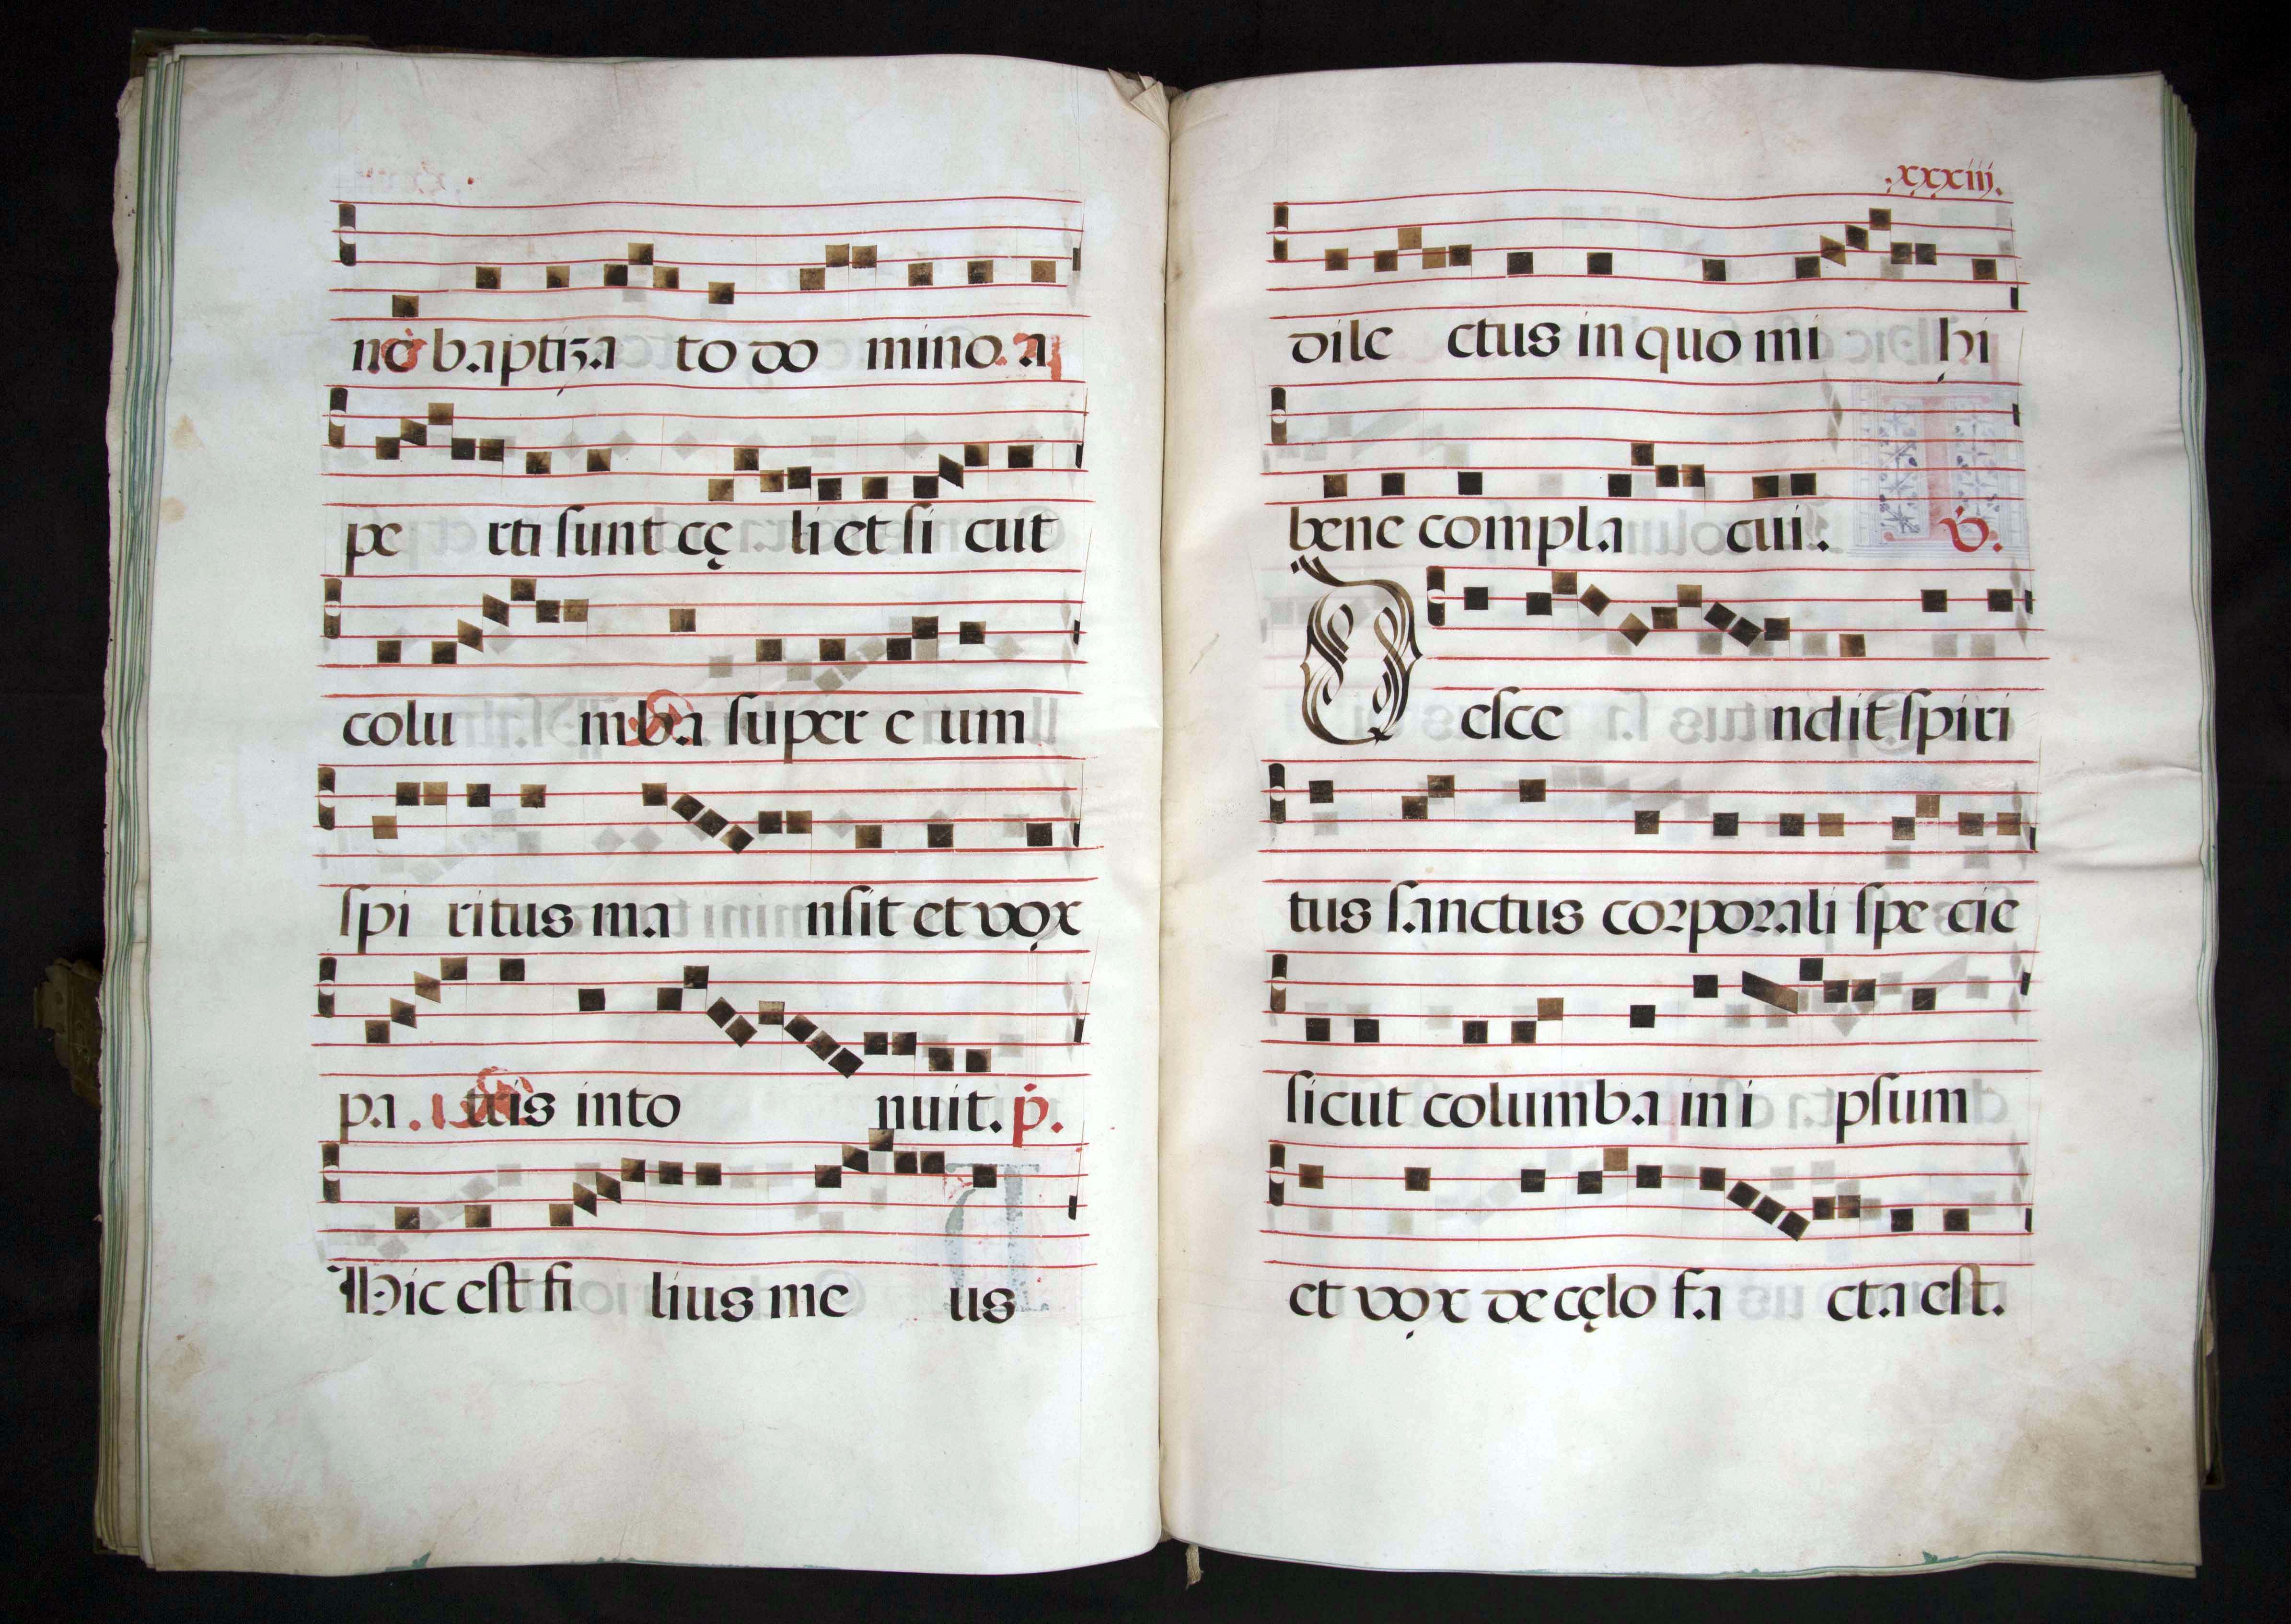 nē baptiza to do mino. a
pe rti sunt cę li et si cut
colu mba super e um
spi ritus ma nsit et vox
pa tris into nuit. p.
Hic est fi lius me us
.xxxiij.
dile ctus in quo mi hi
bene compla cui. V.
D esce ndit spiri
tus sanctus corporali spe cie
sicut columba in i psum
et vox de cęlo fa cta est.